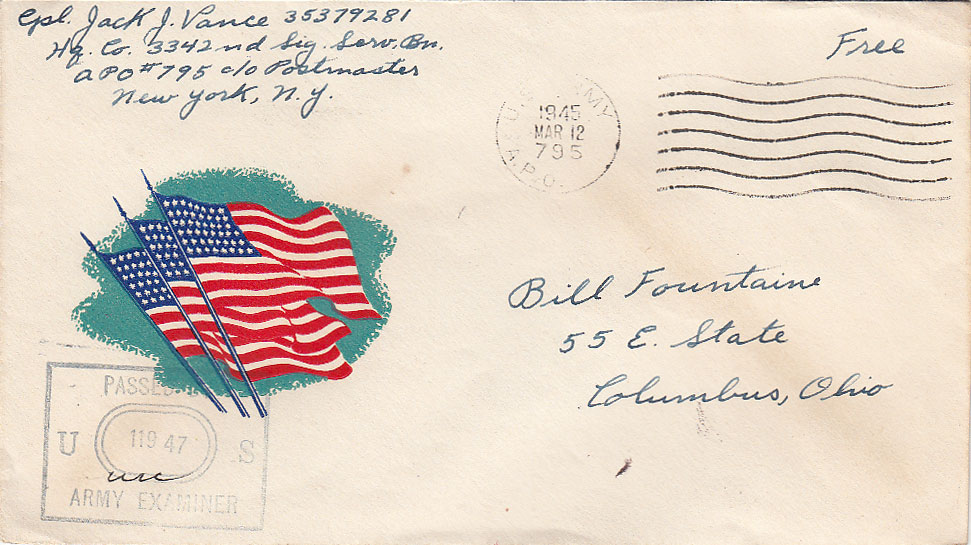 Cpl. Jack J. Vance 35379281
Hq. Co. 3342nd Sig. Serv. Bn.
APO #795 c/o Postmaster
New York, N.Y.
Free
U.S. ARMY
1945
MAR 12
795
A.P.O.
Bill Fountaine
55 E. State
Columbus, Ohio
PASSED
U 11947 S
ARMY EXAMINER